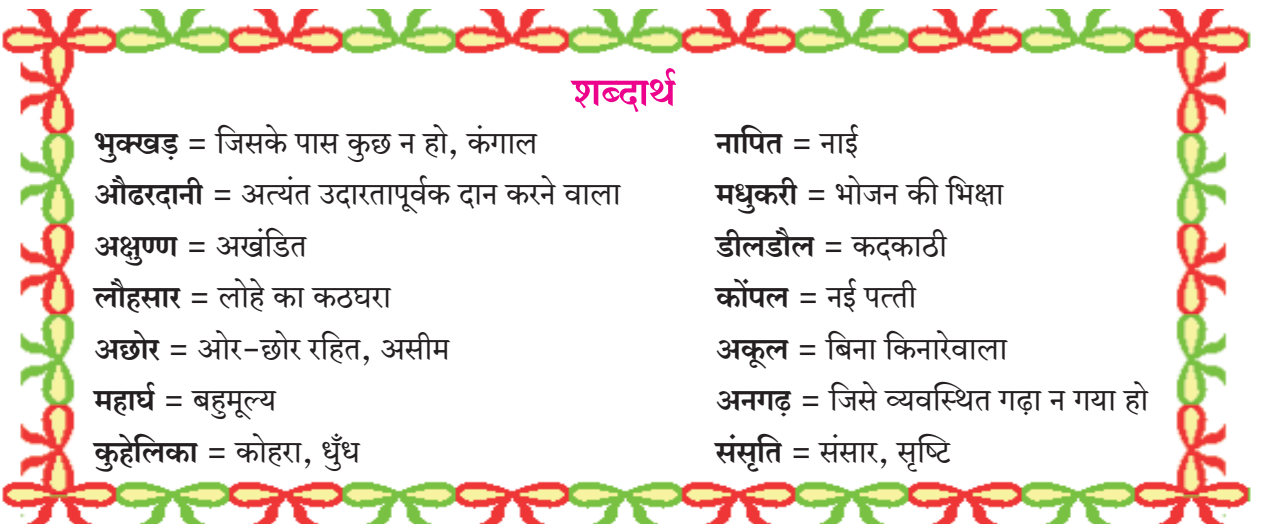 शब्दार्थ
भुक्खड़ = जिसके पास कुछ न हो, कंगाल
औढरदानी = अत्यंत उदारतापूर्वक दान करने वाला
अक्षुण्ण = अखंडित
लौहसार = लोहे का कठघरा
अछोर = ओर-छोर रहित, असीम
महार्घ = बहुमूल्य
कुहेलिका = कोहरा, धुँध
नापित = नाई
मधुकरी = भोजन की भिक्षा
डीलडौल = कदकाठी
कोंपल = नई पत्ती
अकूल = बिना किनारेवाला
अनगढ़ = जिसे व्यवस्थित गढ़ा न गया हो
संसृति = संसार, सृष्टि